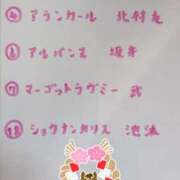 ④ アランカール 北村友
⑧ アルバンヌ 坂井
⑦ マーゴットラヴミー 武
⑬ ショウナンカリス 池添